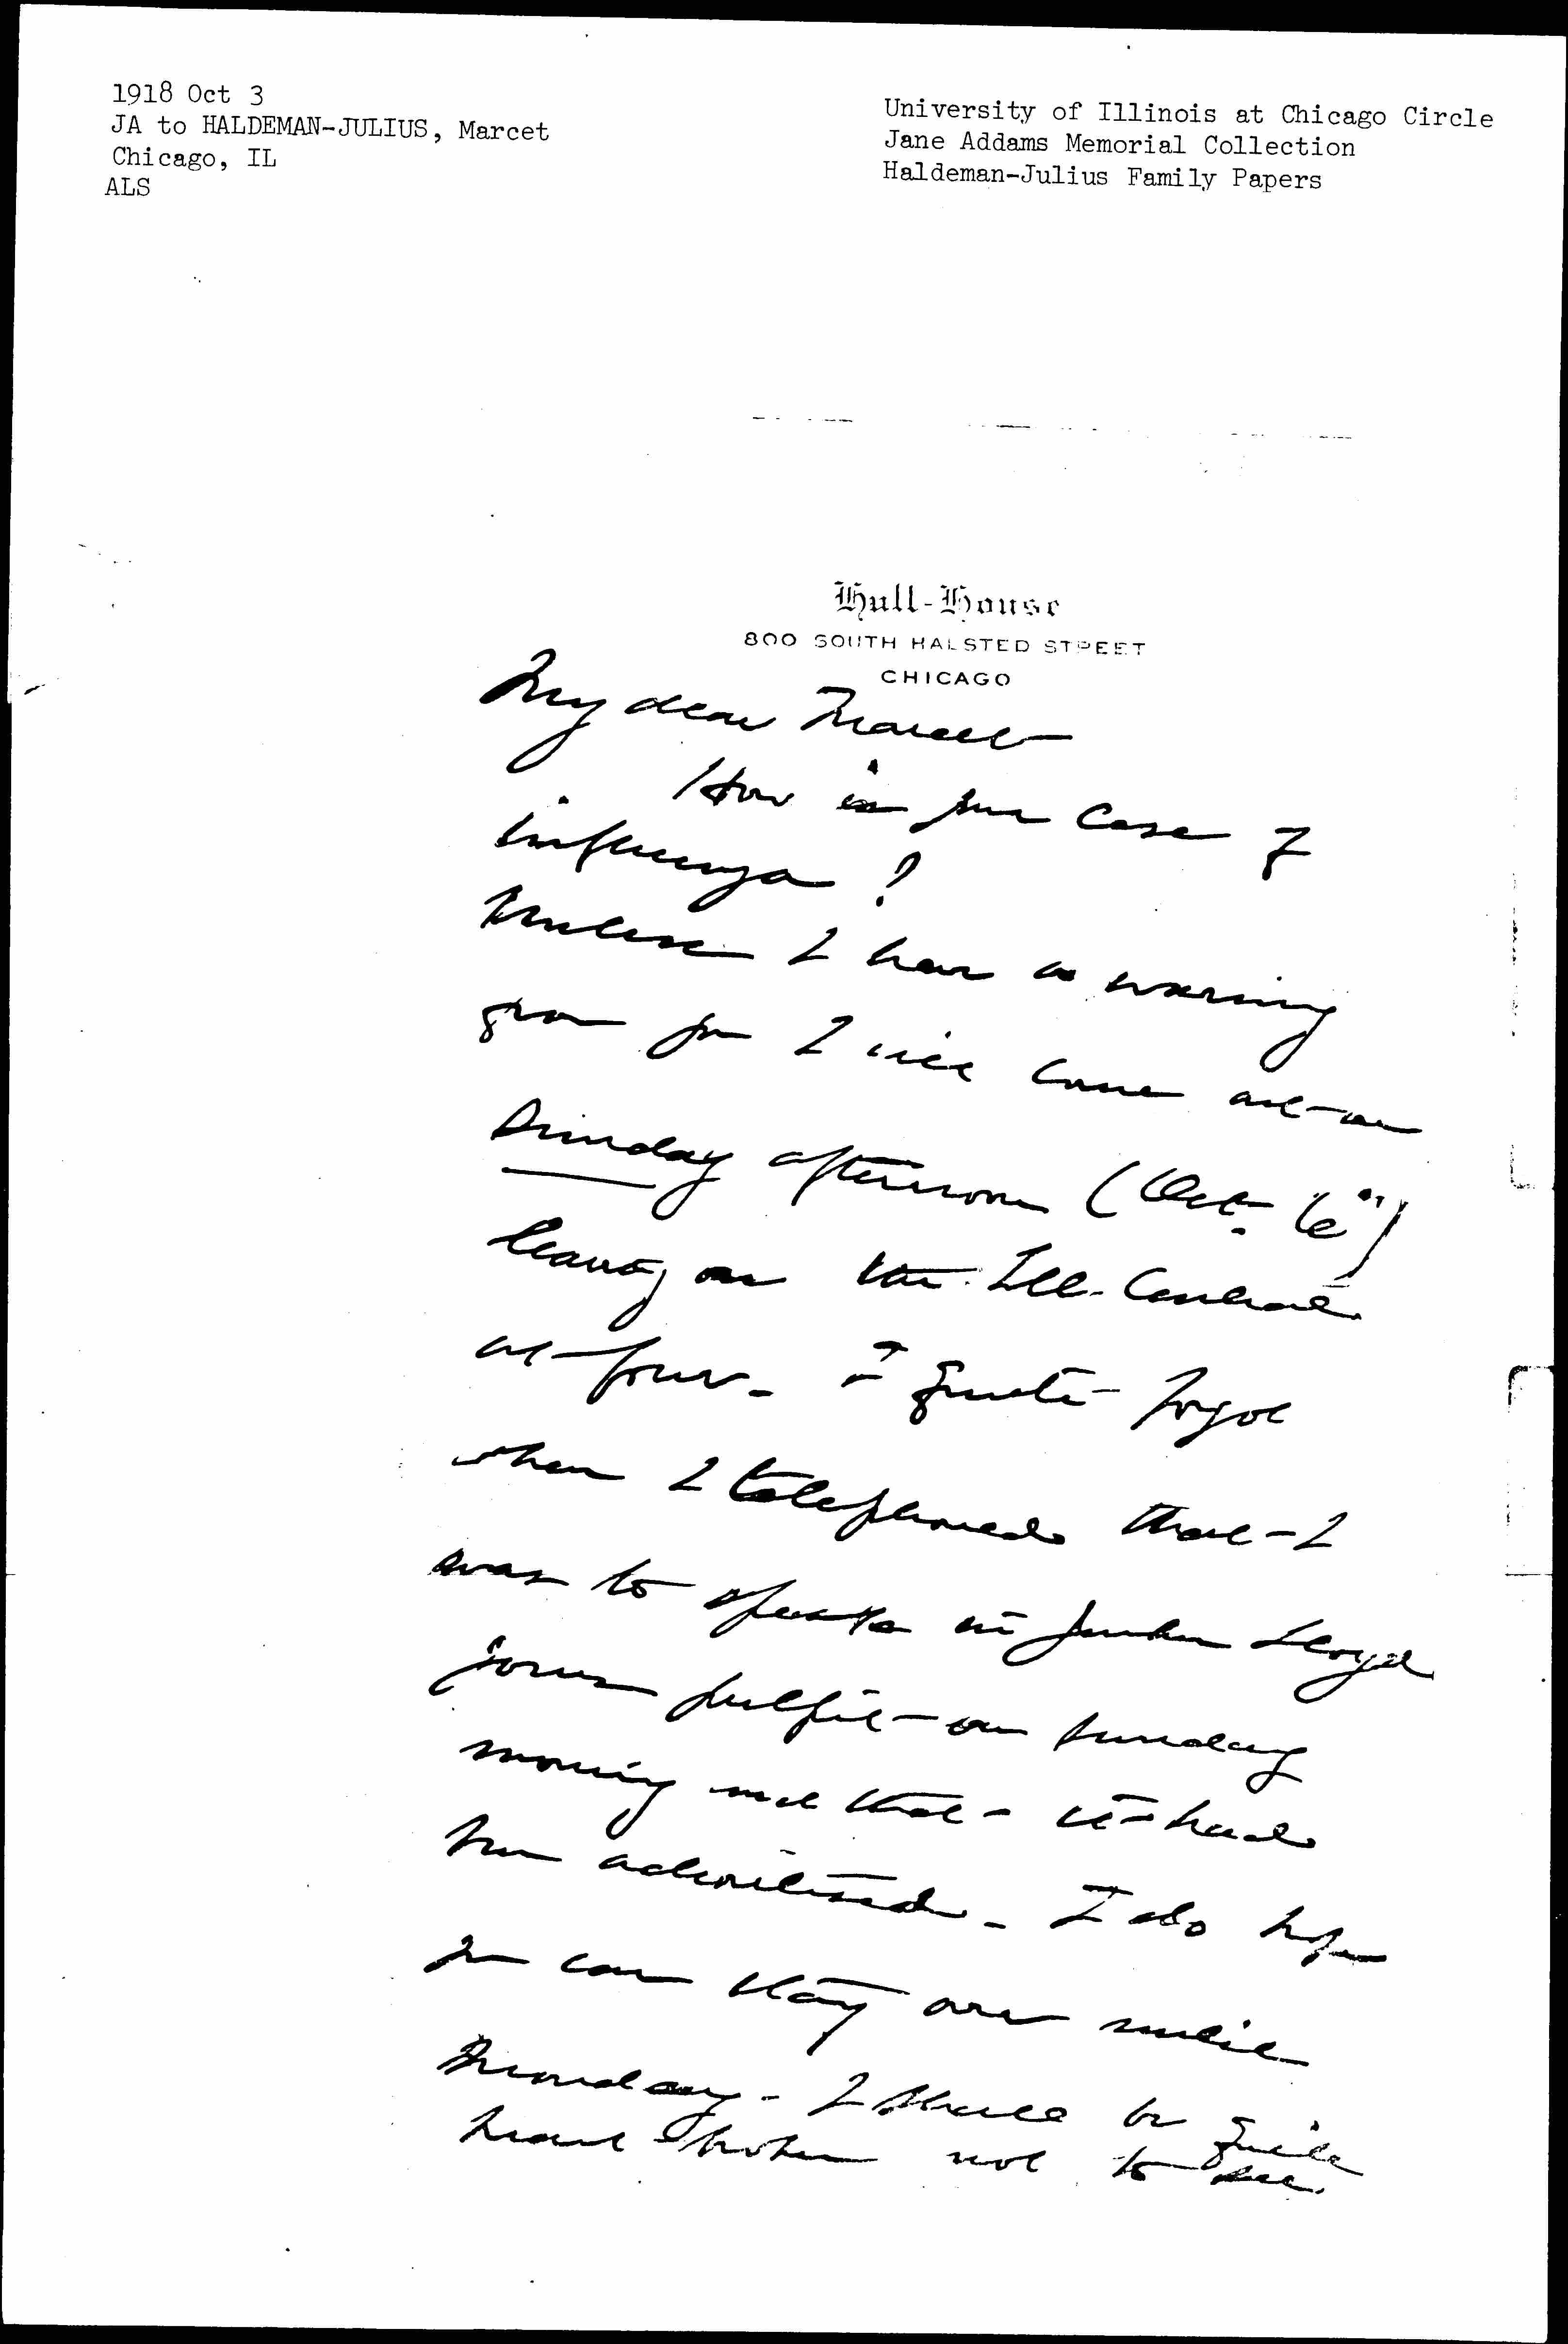 1918 Oct 3
JA to HALDEMAN-JULIUS, Marcet
Chicago, IL
ALS
University of Illinois at Chicago Circle
Jane Addams Memorial Collection
Haldeman-Julius Family Papers
Hull-House
800 SOUTH HALSTED STREET
CHICAGO
My dear Marcet
How is your case of
influenza?
Unless I hear a warning
from you I will come out on
Sunday afternoon (Oct. 6")
leaving on the Ill. Central
at four. I quite forgot
when I telephoned that I
was to speak in Jenkin Lloyd
Jones pulpit on Sunday
morning and that it had
been advertised. I do hope
you can stay over until
Monday. I shall be quite
heart broken not to see